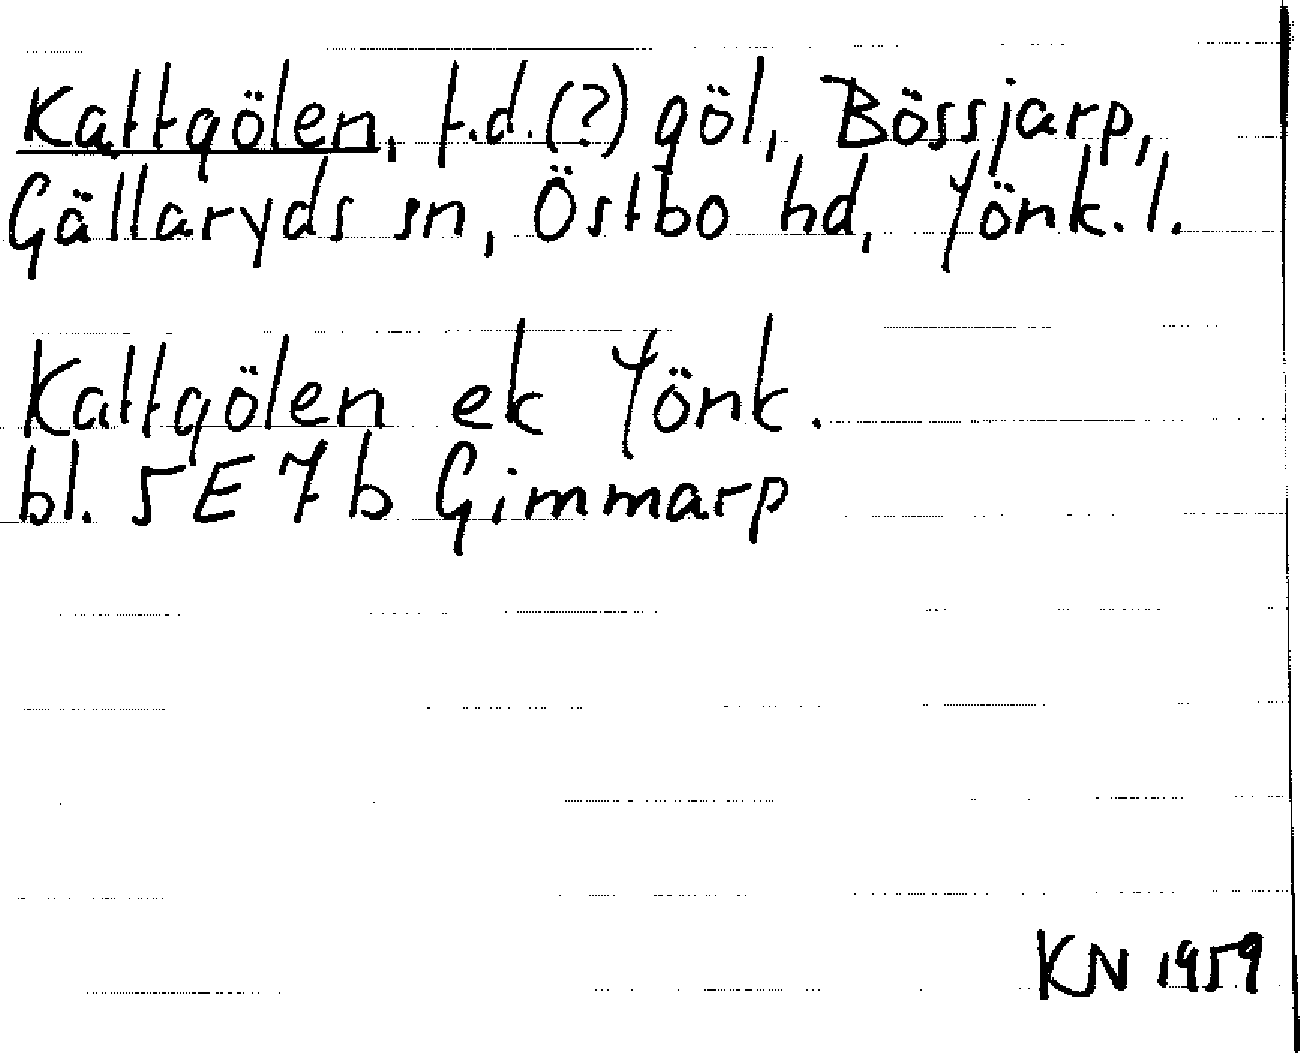 Kattgölen, f.d.(?) göl, Bössjarp,
Gällaryds sn, Östbo hd, Jönk. l.
Kattgölen ek Jönk.
bl. 5E 7b Gimmarp
KN 1959